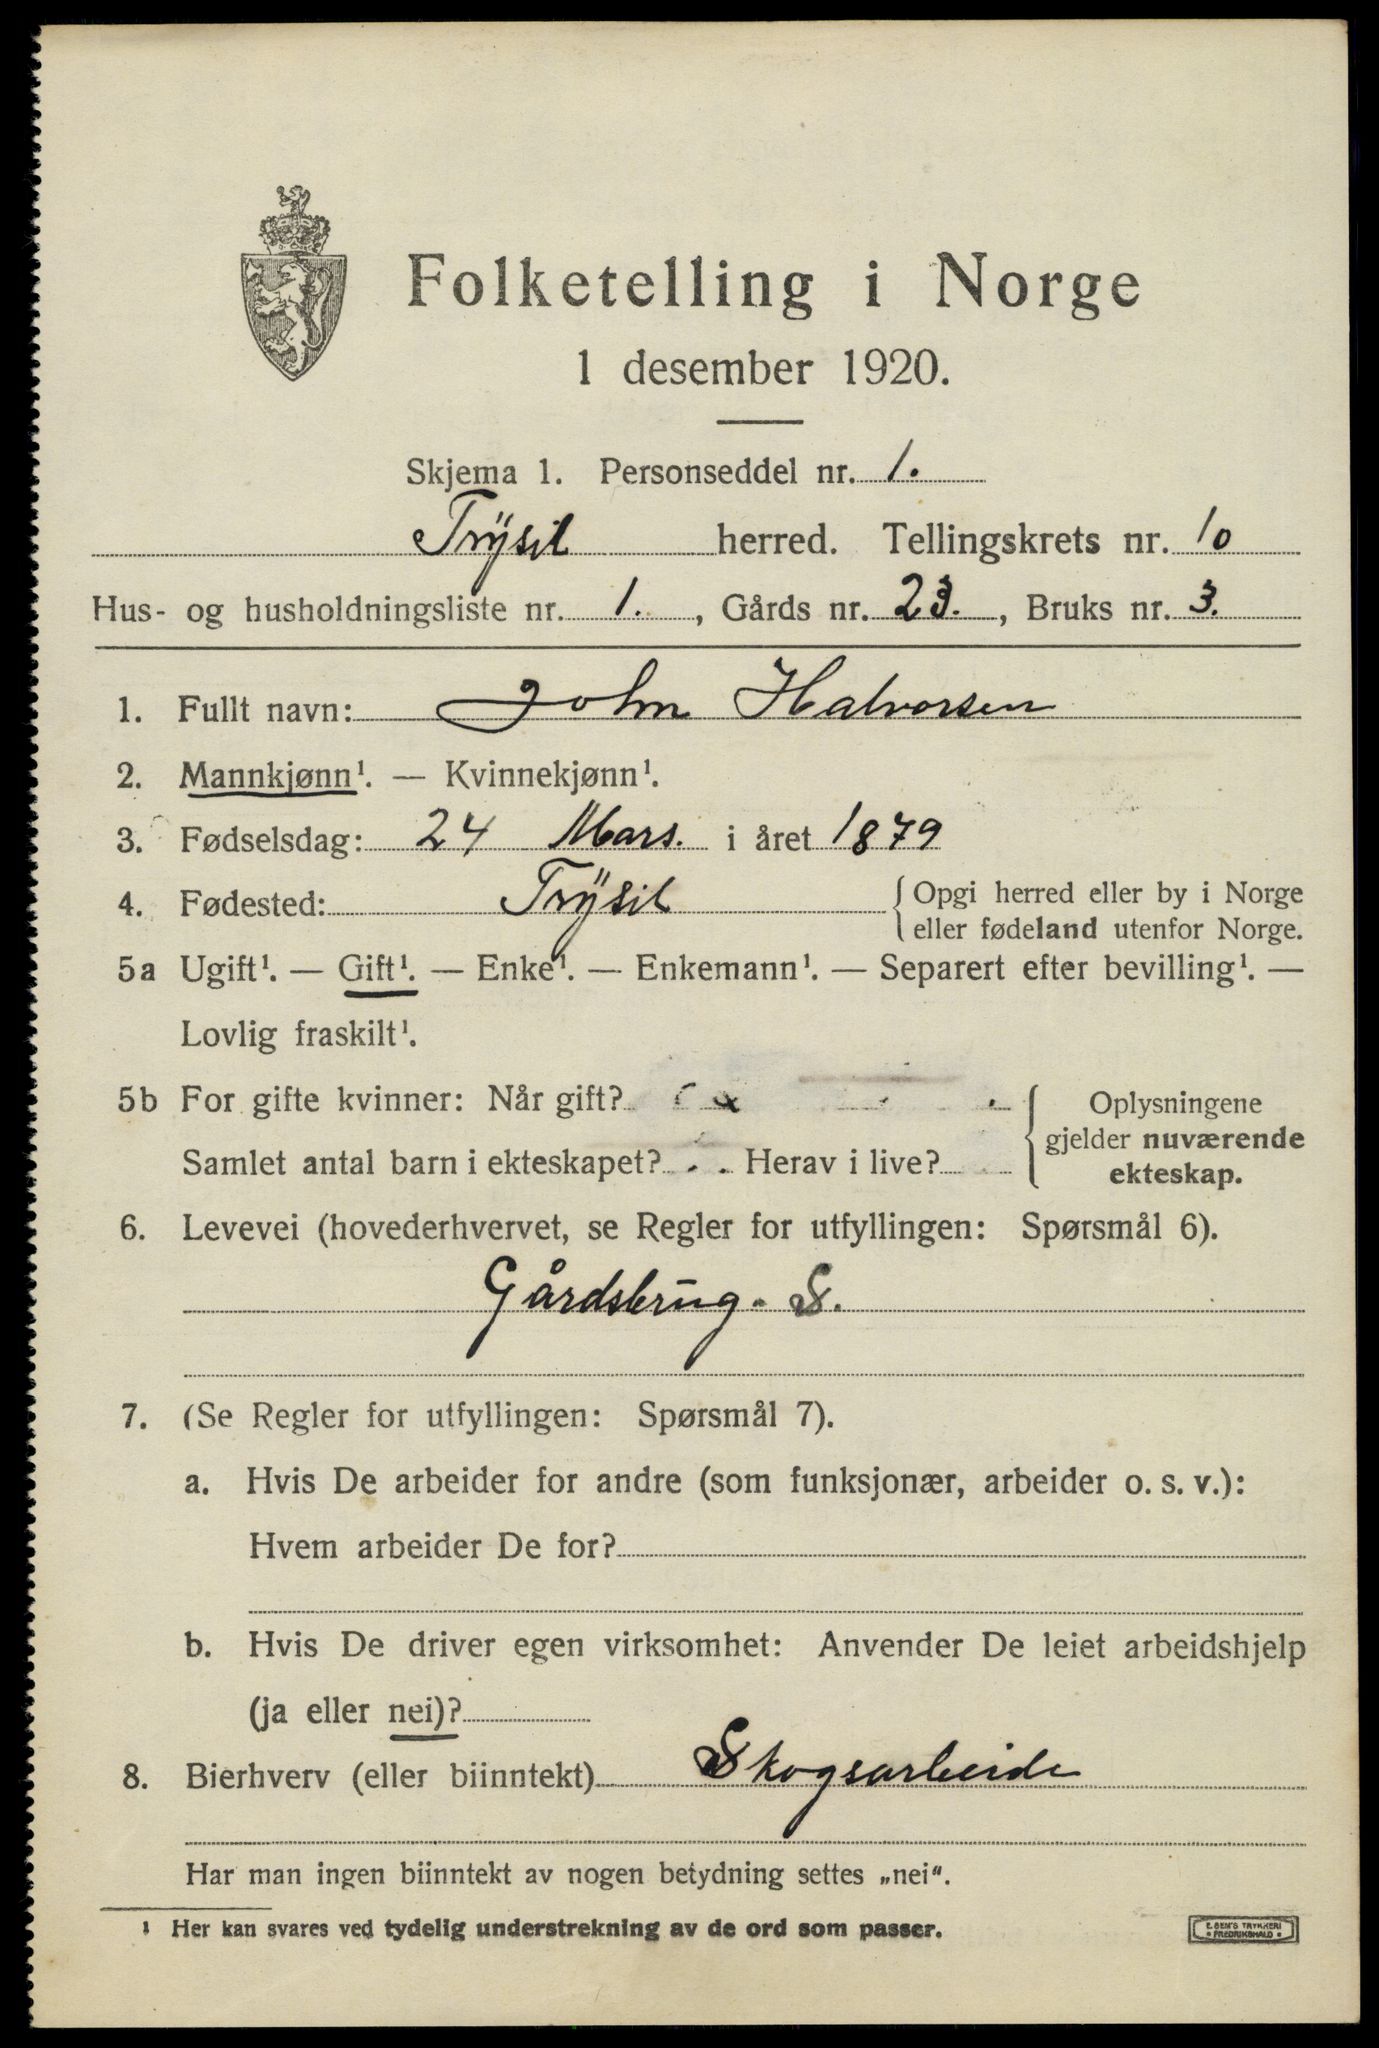 Folketelling i Norge
1 desember 1920.
Skjema 1. Personseddel nr. 1.
Trysil herred. Tellingskrets nr. 10
Hus- og husholdningsliste nr. 1., Gårds nr. 23., Bruks nr. 3.
1. Fullt navn: John Halvorsen
2. Mannkjønn¹. — Kvinnekjønn¹.
3. Fødselsdag: 24 Mars. i året 1879
4. Fødested: Trysil { Opgi herred eller by i Norge
eller fødeland utenfor Norge.
5a Ugift¹. — Gift¹. — Enke¹. — Enkemann¹. — Separert efter bevilling¹. —
Lovlig fraskilt¹.
5b For gifte kvinner: Når gift? { Oplysningene
gjelder nuværende
Samlet antal barn i ekteskapet? Herav i live?
ekteskap.
6. Levevei (hovederhvervet, se Regler for utfyllingen: Spørsmål 6).
Gårdsbrug. S.
7. (Se Regler for utfyllingen: Spørsmål 7).
a. Hvis De arbeider for andre (som funksjonær, arbeider o. s. v.):
Hvem arbeider De for?
b. Hvis De driver egen virksomhet: Anvender De leiet arbeidshjelp
(ja eller nei)?
8. Bierhverv (eller biinntekt) Skogsarbeide
Har man ingen biinntekt av nogen betydning settes „nei“.
¹ Her kan svares ved tydelig understrekning av de ord som passer.
E. SEM'S TRYKKERI
• FREDRIKSHALD •